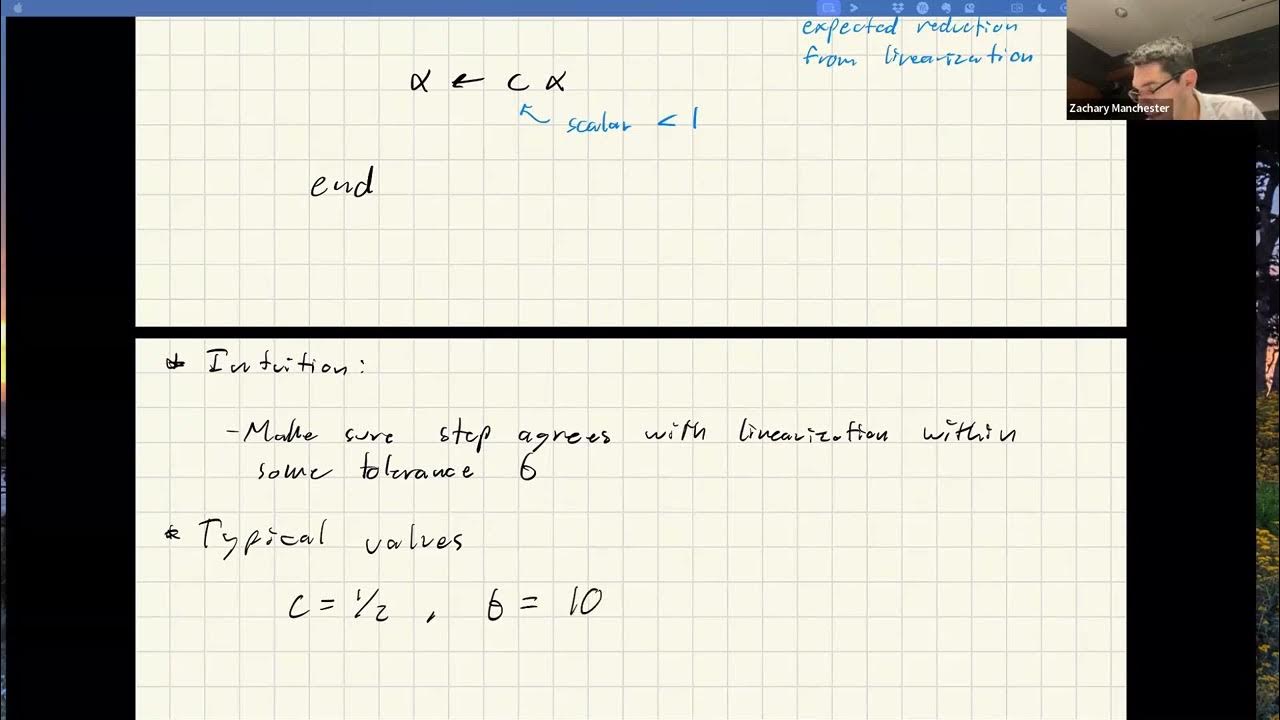 expected reduction
from linearization
α ← c α
scalar < 1
end
Zachary Manchester
* Intuition:
- Make sure step agrees with linearization within
some tolerance b
* Typical values
c = 1/2 , b = 10